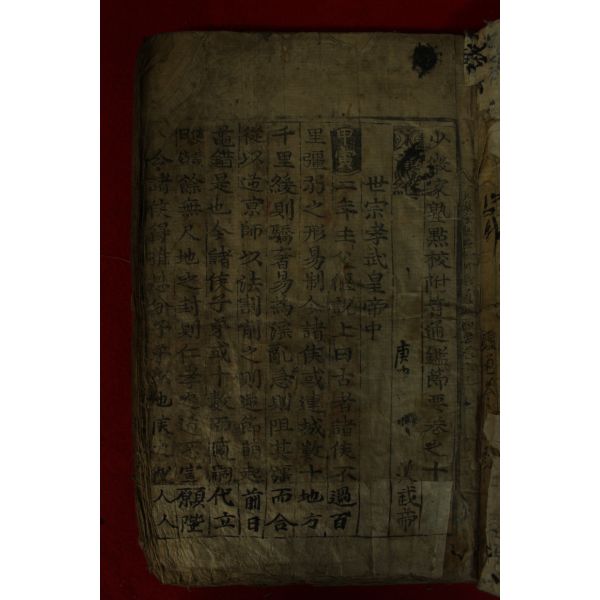 少微家塾點校附音通鑑節要卷之十
漢紀
漢武帝
世宗孝武皇帝中
甲寅 二年主父偃說上曰古者諸侯不過百
里彊弱之形易制今諸侯或連城數十地方
千里緩則驕奢易爲淫亂急則阻其彊而合
從以逆京師以法割削之則逆節萌起前日
鼂錯是也今諸侯子弟或十數而適嗣代立
餘無尺地之封則仁孝之道不宣願陛
令諸侯得推恩分子弟以地侯之人人